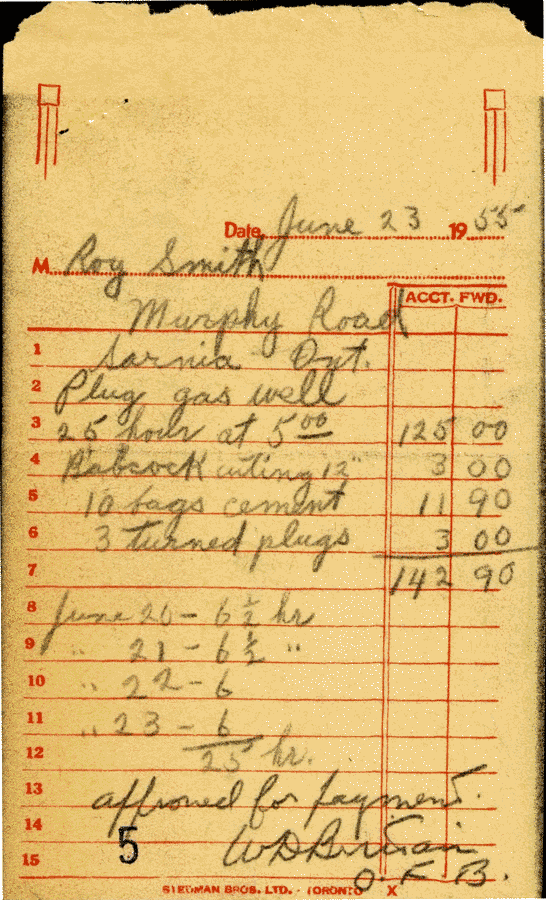 Date June 23 1955
M Roy Smith
ACCT. FWD.
Murphy Road
1 Sarnia Ont.
2 Plug gas well
3 25 hour at 5 00 125 00
4 Babcock cutting 12" 3 00
5 10 bags cement 11 90
6 3 turned plugs 3 00
7 142 90
8 June 20 - 6 1/2 hr
9 " 21 - 6 1/2 "
10 " 22 - 6
11 " 23 - 6
12 25 hr.
13 approved for payment.
14 WD
5
15 O. F. B.
STEDMAN BROS. LTD. - TORONTO X